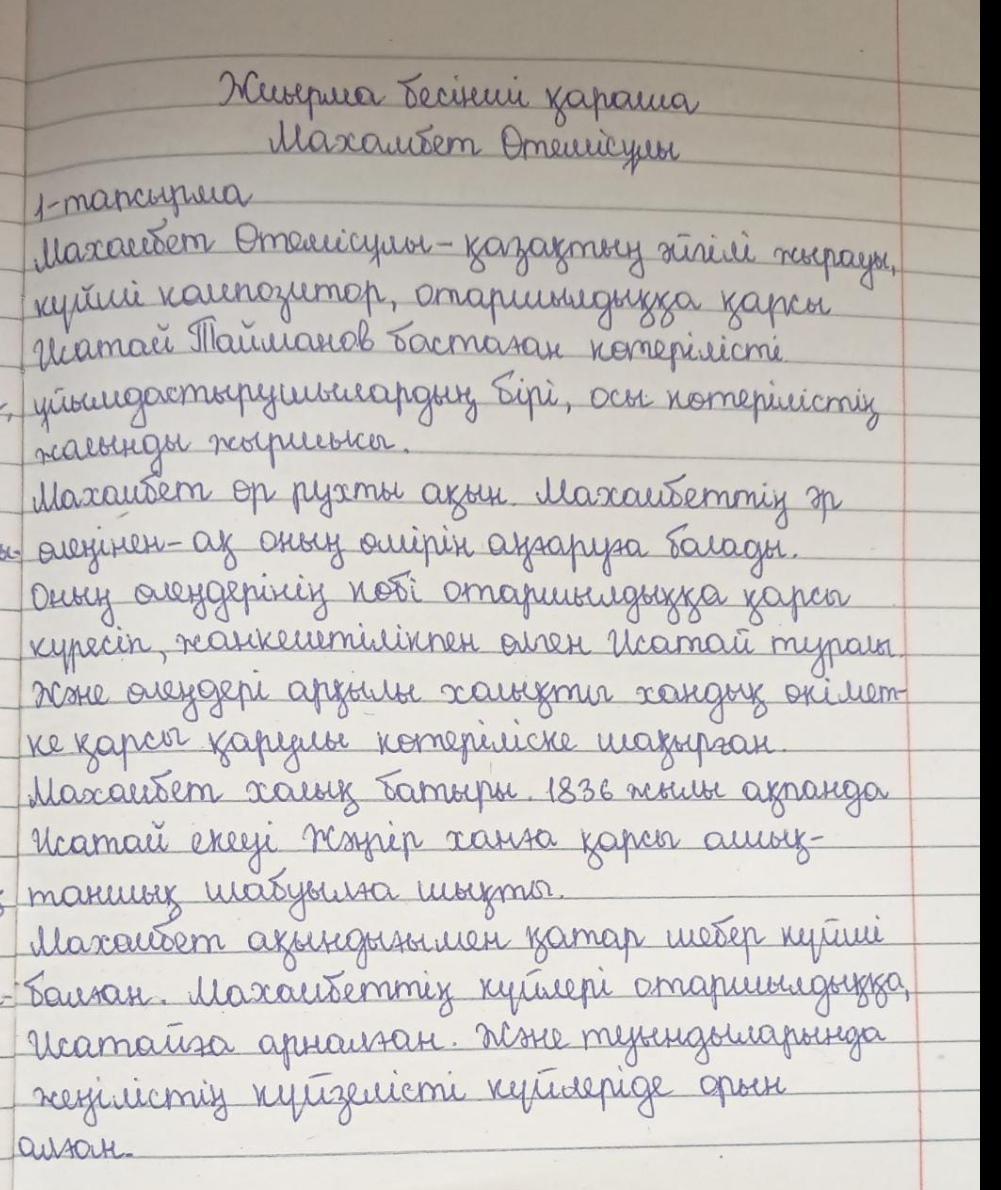 Жиырма бесінші қараша
Махамбет Өтемісұлы
1-тапсырма
Махамбет Өтемісұлы - қазақтың әйгілі жырауы,
күйші композитор, отаршылдыққа қарсы
Исатай Тайманов бастаған көтерілісті
ұйымдастырушылардың бірі, осы көтерілістің
жалынды жыршысы.
Махамбет өр рухты ақын. Махамбеттің әр
өлеңінен-ақ оның өмірін аңғаруға балады.
Оның өлеңдерінің көбі отаршылдыққа қарсы
күресіп, жанкештілікпен өлген Исатай туралы.
Және өлеңдері арқылы халықты хандық өкімет-
ке қарсы қарулы көтеріліске шақырған.
Махамбет халық батыры. 1836 жылы ақпанда
Исатай екеуі Жәңгір ханға қарсы ашық-
таншық шабуылға шықты.
Махамбет ақындығымен қатар шебер күйші
балған. Махамбеттің күйлері отаршылдыққа,
Исатайға арналған. Және туындыларында
жеңілістің күйзелісті күйлеріде орын
алған.